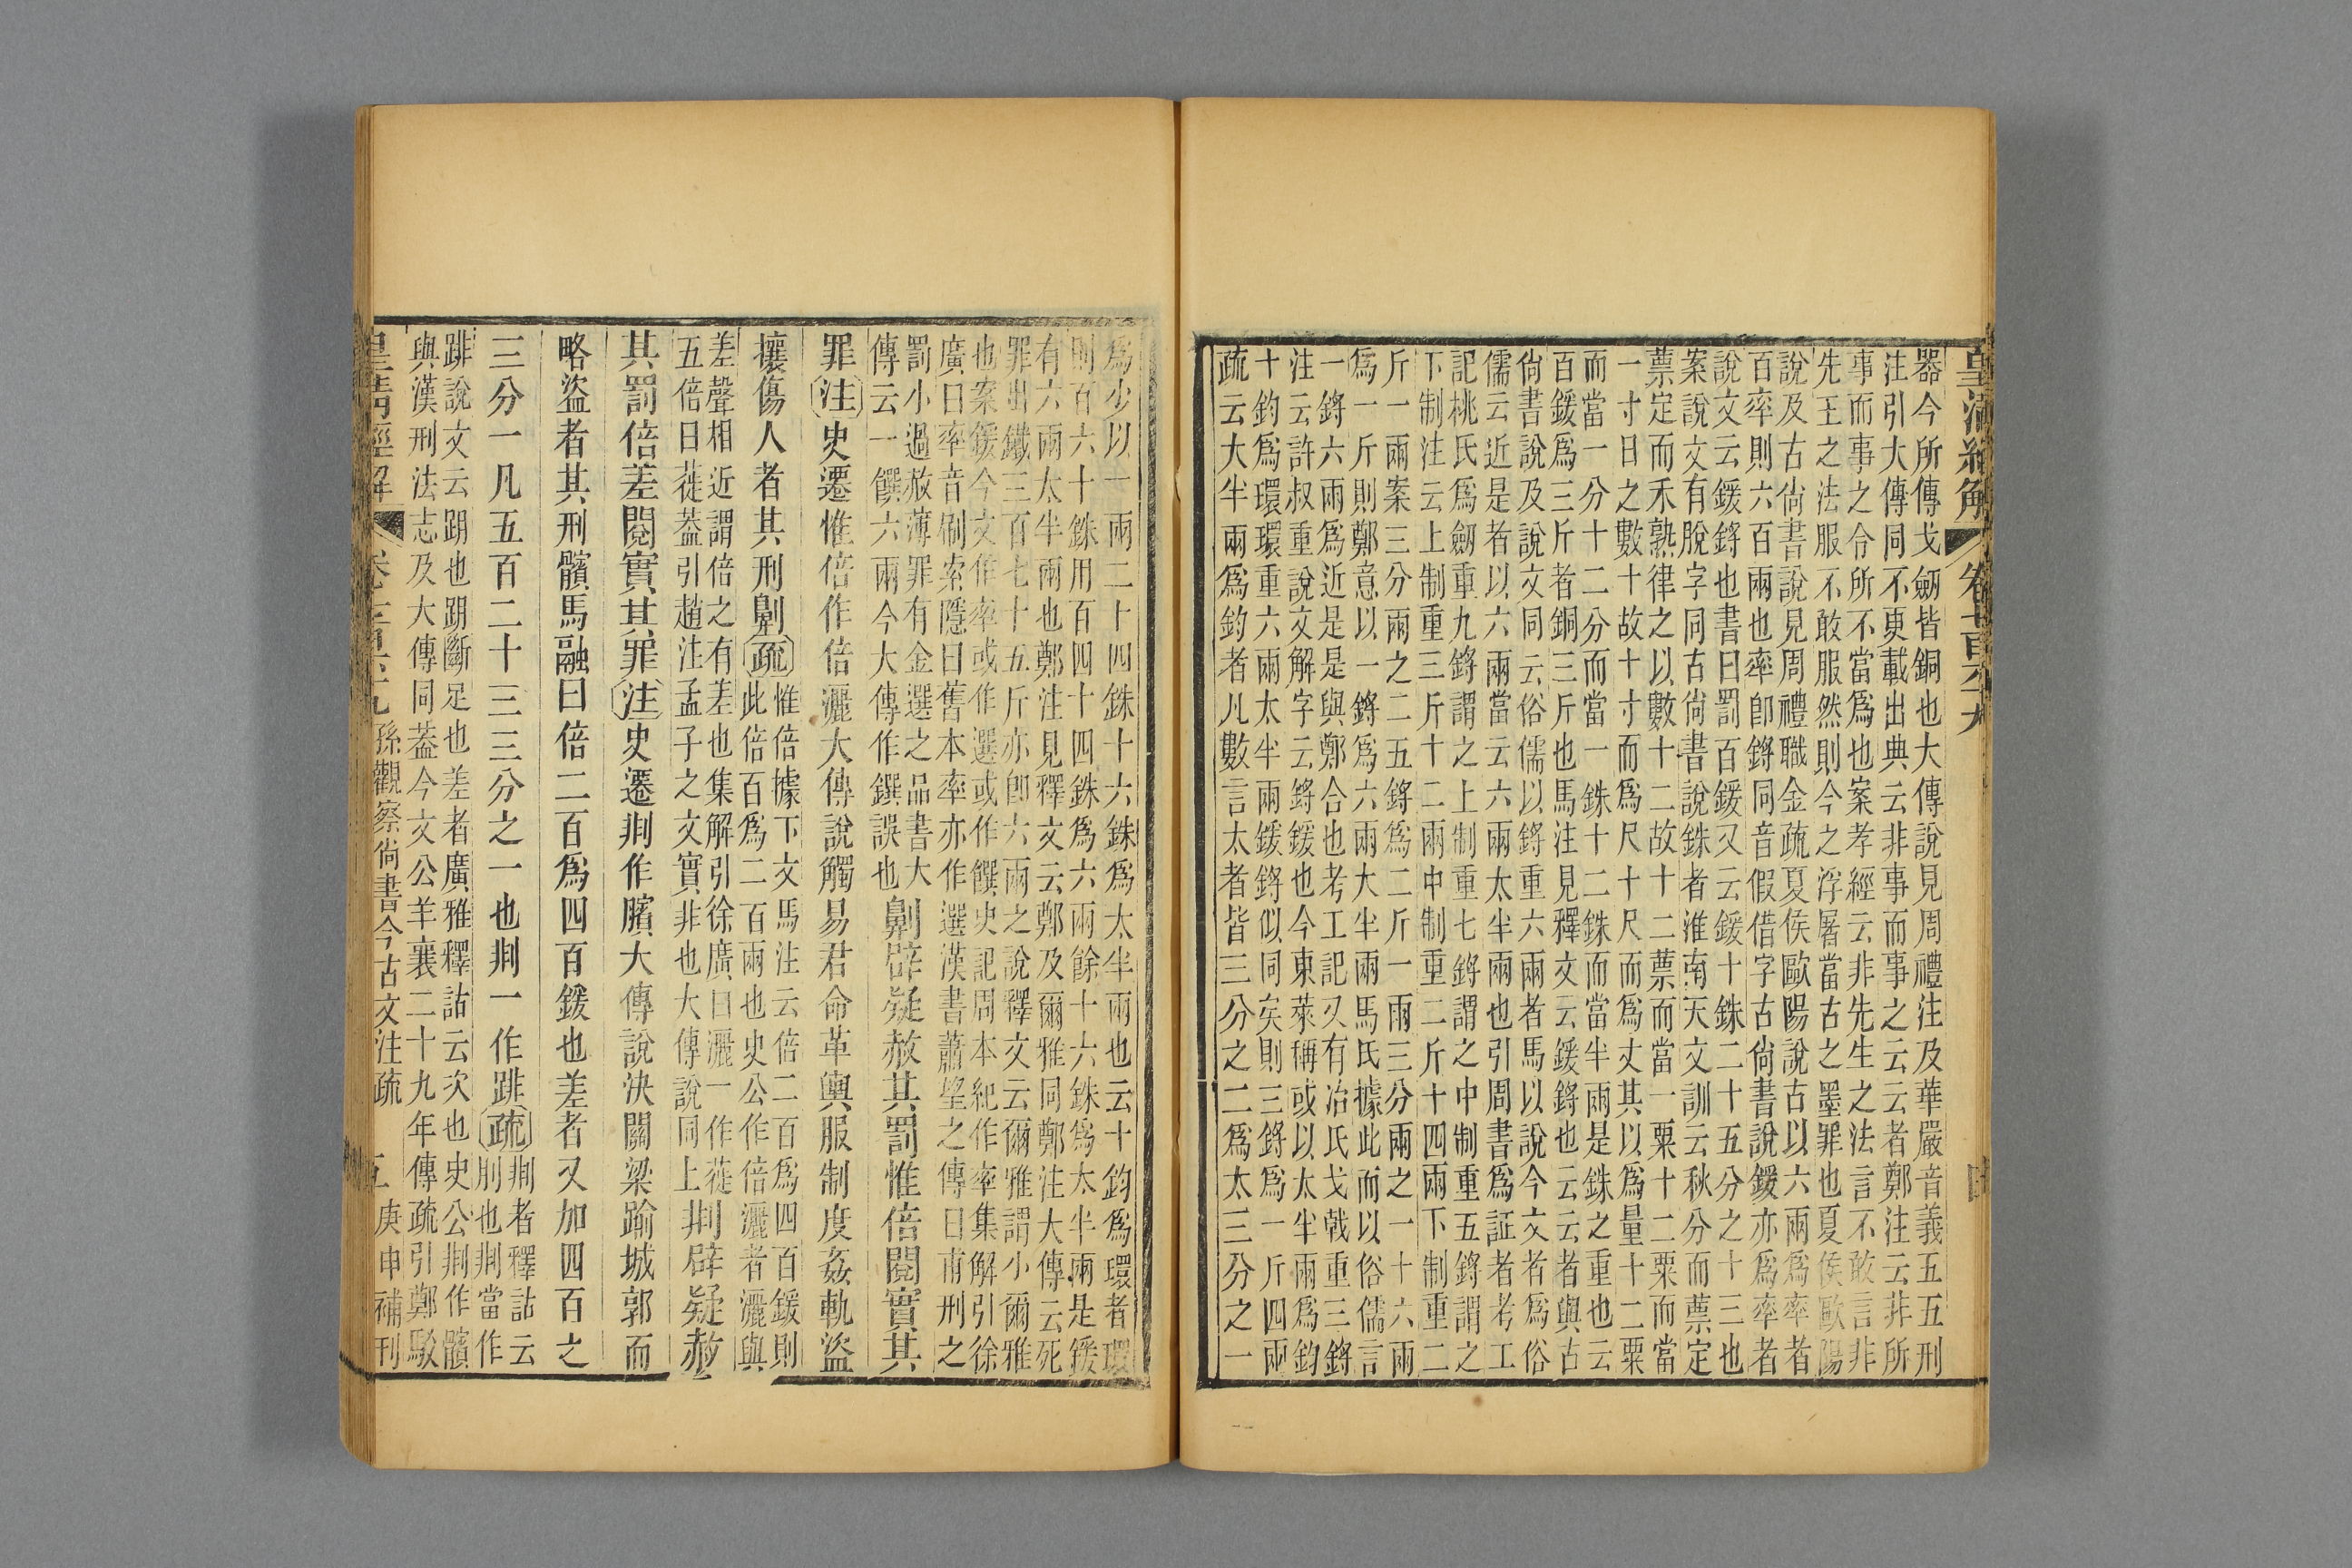 器今所傳戈劒皆銅也大傳說見周禮注及華嚴音義五五刑
注引大傳同不更載出典云非事而事之云云者鄭注云非所
事而事之令所不當爲也案孝經云非先生之法言不敢言非
先王之法服不敢服然則今之浮屠當古之墨罪也夏侯歐陽
說及古尙書說見周禮職金疏夏侯歐陽說古以六兩爲率者
百率則六百兩也率卽鋝同音假借字古尙書說鍰亦爲率者
說文云鍰鋝也書曰罰百鍰又云鍰十銖二十五分之十三也
案說文有脫字同古尙書說銖者淮南天文訓云秋分而蔈定
蔈定而禾熟律之以數十二故十二蔈而當一粟十二粟而當
一寸日之數十故十寸而爲尺十尺而爲丈其以爲量十二粟
而當一分十二分而當一銖十二銖而當半兩是銖之重也云
百鍰爲三斤者銅三斤也馬注見釋文云鍰鋝也云云者與古
尙書說及說文同云俗儒以鋝重六兩者馬以說今文者爲俗
儒云近是者以六兩當云六兩太半兩也引周書爲証者考工
記桃氏爲劒重九鋝謂之上制重七鋝謂之中制重五鋝謂之
下制注云上制重三斤十二兩中制重二斤十四兩下制重二
斤一兩案三分兩之二五鋝爲二斤一兩三分兩之一十六兩
爲一斤則鄭意以一鋝爲六兩大半兩馬氏據此而以俗儒言
一鋝六兩爲近是是與鄭合也考工記又有冶氏戈戟重三鋝
注云許叔重說文解字云鋝鍰也今東萊稱或以太半兩爲鈞
十鈞爲環環重六兩太半兩鍰鋝似同矣則三鋝爲一斤四兩
疏云大半兩爲鈞者凡數言太者皆三分之二爲太三分之一
爲少以一兩二十四銖十六銖爲太半兩也云十鈞爲環者環
則百六十銖用百四十四銖爲六兩餘十六銖爲太半兩是鍰
有六兩太半兩也鄭注見釋文云鄭及爾雅同鄭注大傳云死
罪出鐵三百七十五斤亦卽六兩之說釋文云爾雅謂小爾雅
也案鍰今文作率或作選或作饌史記周本紀作率集解引徐
廣曰率音刷索隱曰舊本率亦作選漢書蕭望之傳曰甫刑之
罰小過赦薄罪有金選之品書大
傳云一饌六兩今大傳作鐉誤也
劓辟疑赦其罰惟倍閱實其
罪注史遷惟倍作倍灑大傳說觸易君命革輿服制度姦軌盜
攘傷人者其刑劓疏
惟倍據下文馬注云倍二百爲四百鍰則
此倍百爲二百兩也史公作倍灑者灑與
差聲相近謂倍之有差也集解引徐廣曰灑一作蓰
五倍曰蓰葢引趙注孟子之文實非也大傳說同上
剕辟疑赦
其罰倍差閱實其罪注史遷剕作臏大傳說決關梁踰城郭而
略盜者其刑髕馬融曰倍二百爲四百鍰也差者又加四百之
三分一凡五百二十三三分之一也剕一作跳疏
剕者釋詁云
刖也剕當作
跳說文云跀也跀斷足也差者廣雅釋詁云次也史公剕作髕
與漢刑法志及大傳同葢今文公羊襄二十九年傳疏引鄭駁
孫觀察尙書今古文注疏
庚申補刊